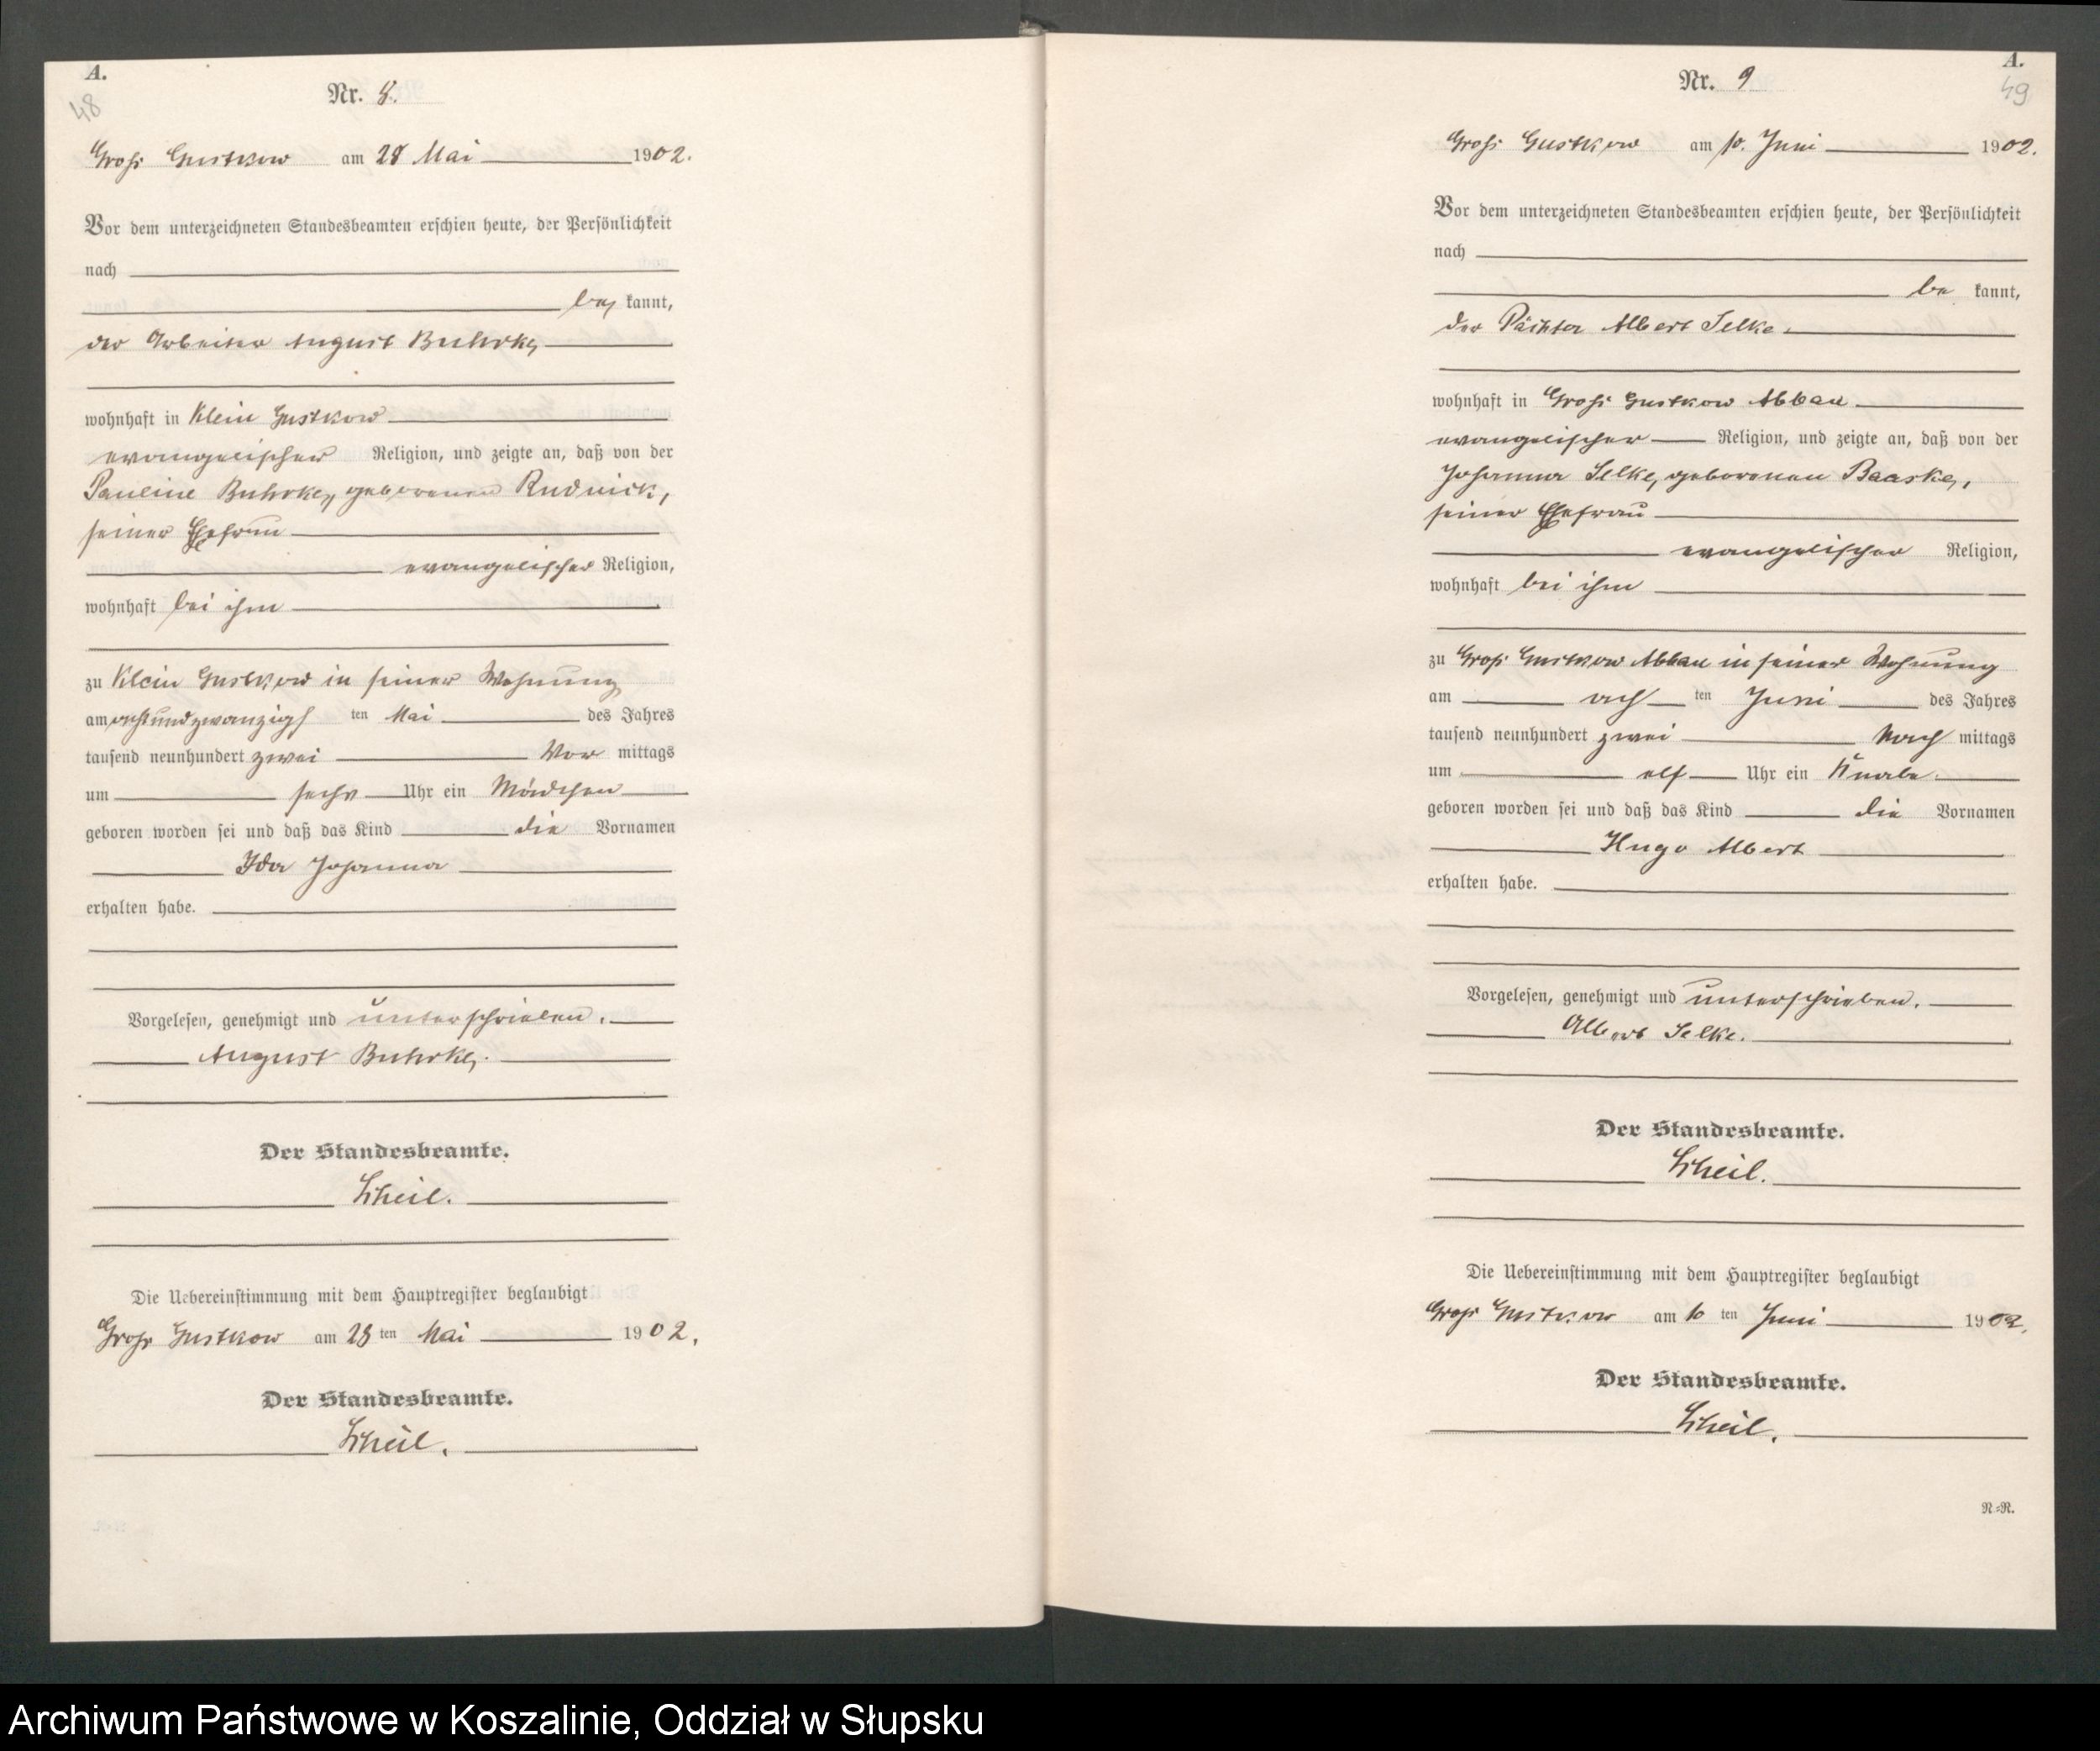 A.
48
Nr. 8.
Groß Gustkow am 28 Mai 1902.
Vor dem unterzeichneten Standesbeamten erschien heute, der Persönlichkeit
nach
be kannt,
der Arbeiter August Buhrke
wohnhaft in Klein Gustkow
evangelischer Religion, und zeigte an, daß von der
Pauline Buhrke, geborenen Rudnick,
seiner Ehefrau
evangelischer Religion,
wohnhaft bei ihm
zu Klein Gustkow in seiner Wohnung
am achtundzwanzigs ten Mai des Jahres
tausend neunhundert zwei Vor mittags
um sechs Uhr ein Mädchen
geboren worden sei und daß das Kind die Vornamen
Ida Johanna
erhalten habe.
Vorgelesen, genehmigt und unterschrieben.
August Buhrke.
Der Standesbeamte.
Scheil.
Die Uebereinstimmung mit dem Hauptregister beglaubigt
Groß Gustkow am 28 ten Mai 1902.
Der Standesbeamte.
Scheil.
A.
49
Nr. 9
Groß Gustkow am 10. Juni 1902.
Vor dem unterzeichneten Standesbeamten erschien heute, der Persönlichkeit
nach
be kannt,
der Pächter Albert Selke.
wohnhaft in Groß Gustkow Abbau
evangelischer Religion, und zeigte an, daß von der
Johanna Selke, geborenen Baaske,
seiner Ehefrau
evangelischer Religion,
wohnhaft bei ihm
zu Groß Gustkow Abbau in seiner Wohnung
am ach ten Juni des Jahres
tausend neunhundert zwei Nach mittags
um elf Uhr ein Knabe.
geboren worden sei und daß das Kind die Vornamen
Hugo Albert
erhalten habe.
Vorgelesen, genehmigt und unterschrieben.
Albert Selke.
Der Standesbeamte.
Scheil.
Die Uebereinstimmung mit dem Hauptregister beglaubigt
Groß Gustkow am 10 ten Juni 1902.
Der Standesbeamte.
Scheil.
N=R.
Archiwum Państwowe w Koszalinie, Oddział w Słupsku